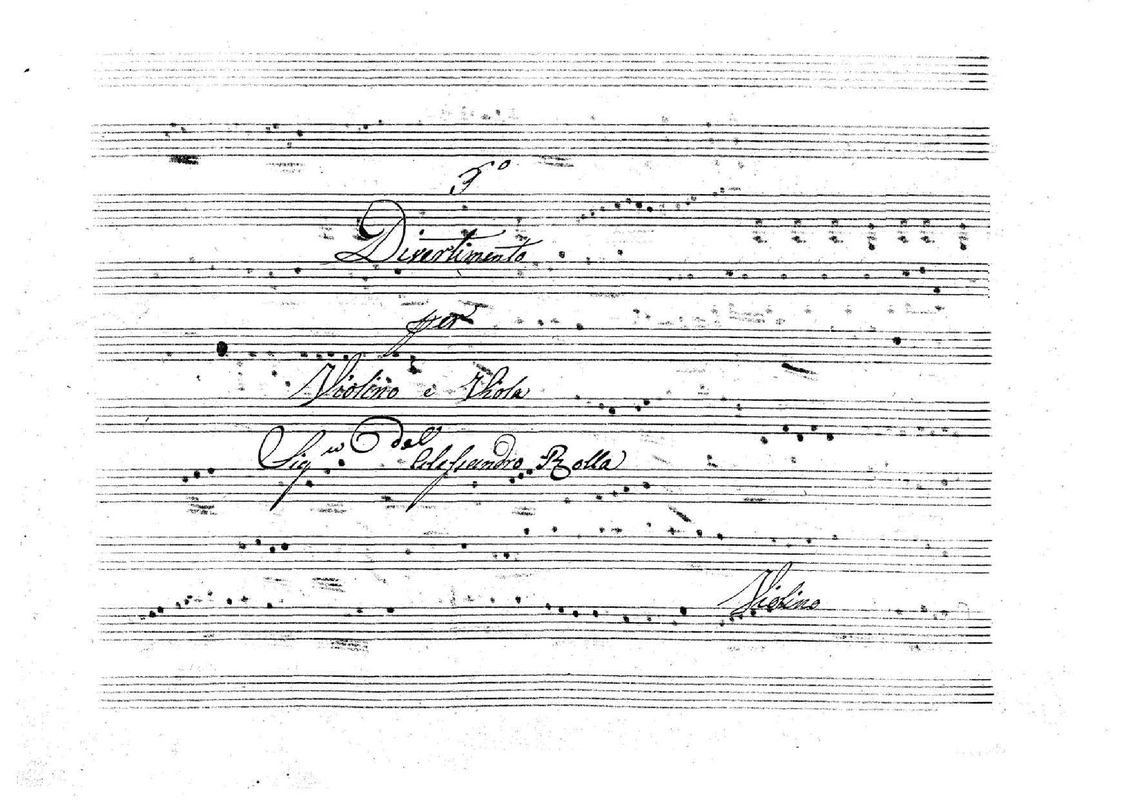 3º
Divertimento
per
Violino e Viola
del
Sig.re Alessandro Rolla
Violino